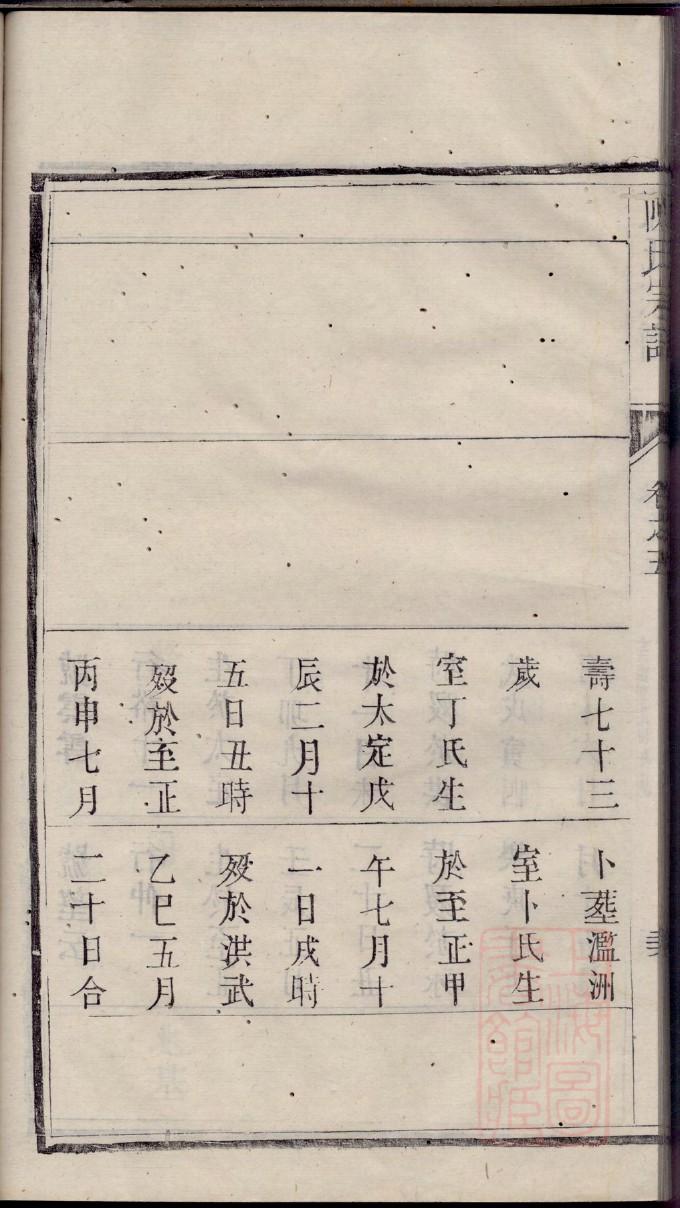 陳氏宗譜
卷之五
壽七十三
歲
室丁氏生
於太定戊
辰二月十
五日丑時
殁於至正
丙申七月
卜塟濫洲
室卜氏生
於至正甲
午七月十
一日戌時
殁於洪武
乙巳五月
二十日合